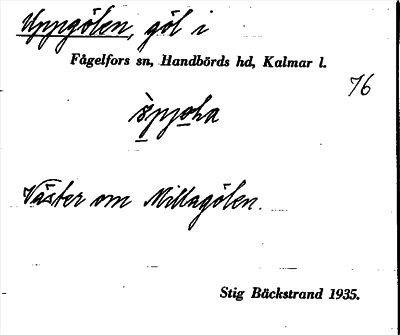 Uppgölen, göl i
Fågelfors sn, Handbörds hd, Kalmar l.
76
Väster om Millagölen.
Stig Bäckstrand 1935.